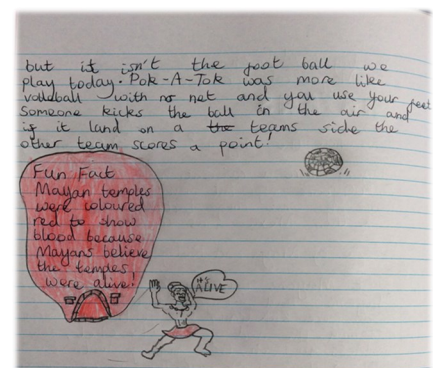 but it isn't the foot ball we
play today. Pok-A-Tok was more like
volleyball with no net and you use your feet.
Someone kicks the ball in the air and
if it land on a the teams side the
other team scores a point!
Fun Fact
Mayan temples
were coloured
red to show
blood because
Mayans believe
the temples
were alive.
it's
ALIVE